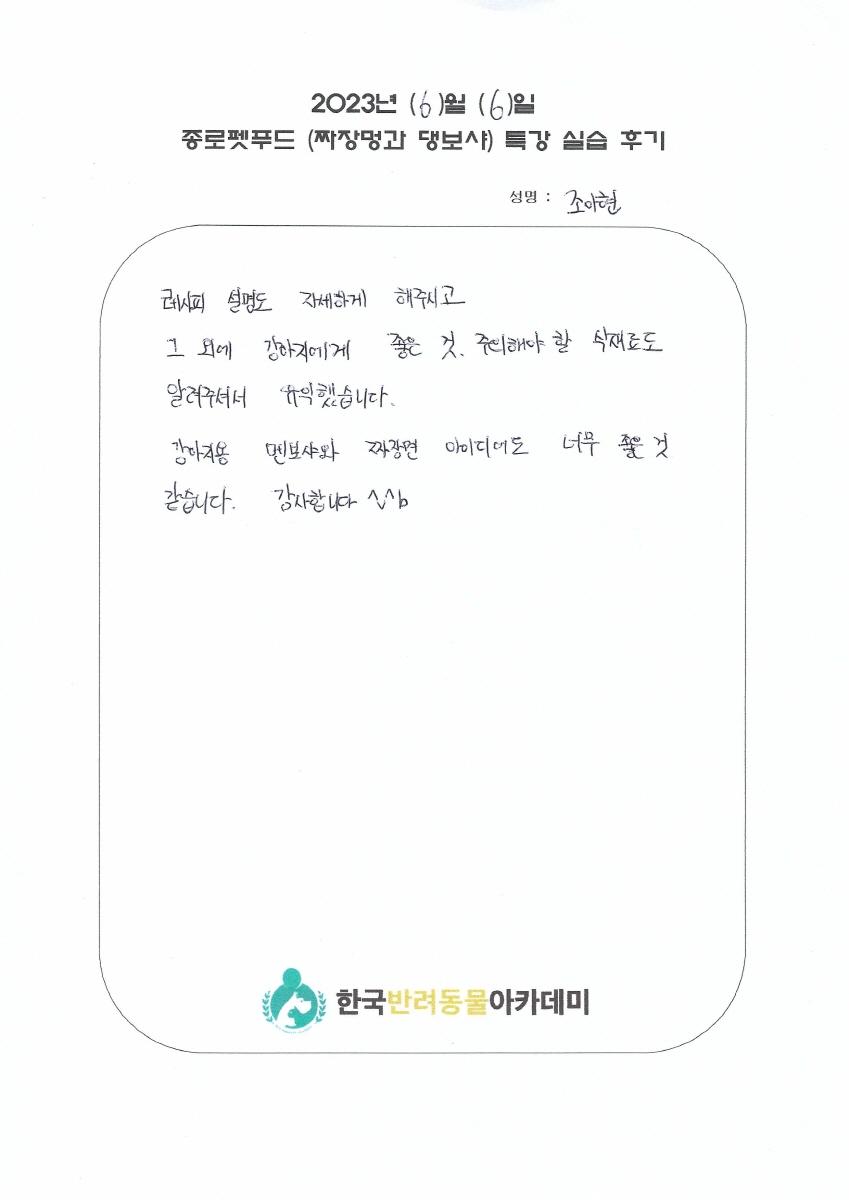 2023년 (6)월 (6)일
종로펫푸드 (짜장멍과 댕보샤) 특강 실습 후기
성명 : 조아현
레시피 설명도 자세하게 해주시고
그 외에 강아지에게 좋은 것, 주의해야 할 식재료도
알려주셔서 유익했습니다.
강아지용 멘보샤와 짜장면 아이디어도 너무 좋은 것
같습니다. 감사합니다 ^v^b
한국반려동물아카데미